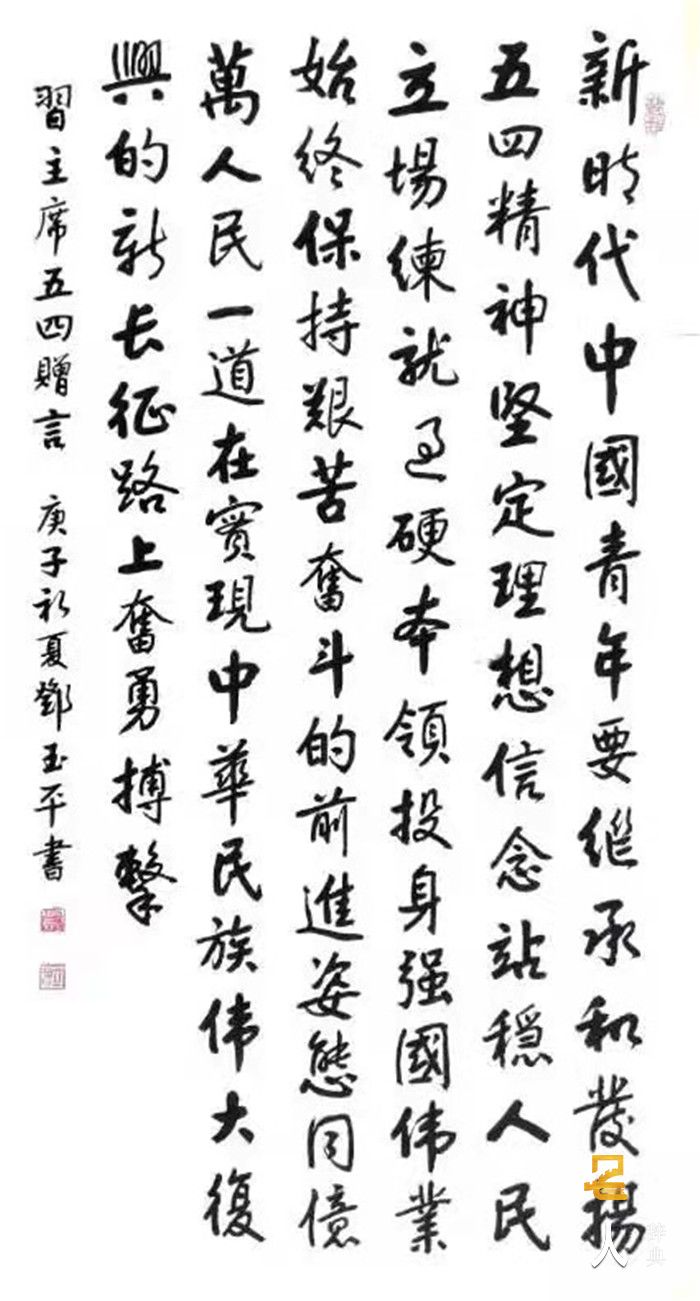 新時代中國青年要繼承和發揚
五四精神坚定理想信念站穏人民
立場練就过硬本領投身强國伟業
始终保持艱苦奮斗的前進姿態同億
萬人民一道在實現中華民族伟大復
興的新长征路上奮勇搏擊
習主席五四贈言 庚子初夏鄧玉平書
名人
辞典